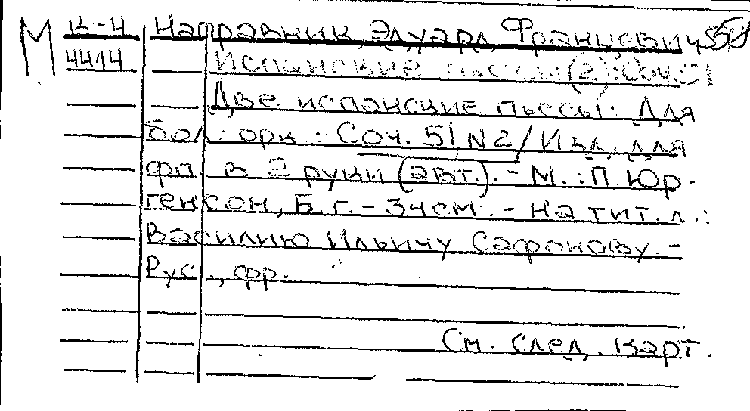 М К-Н Направник, Эдуард Францевич
4414 Испанские пьесы (2). Соч. 51
Две испанские пьесы. Для
бол. орк. Соч. 51 N2/Изд. для
фп. в 2 руки (авт.). - М.: П. Юр-
генсон, Б.г. - 34см. - На тит. л.:
Василию Ильичу Сафонову. -
Рус., фр.
См. след. карт.